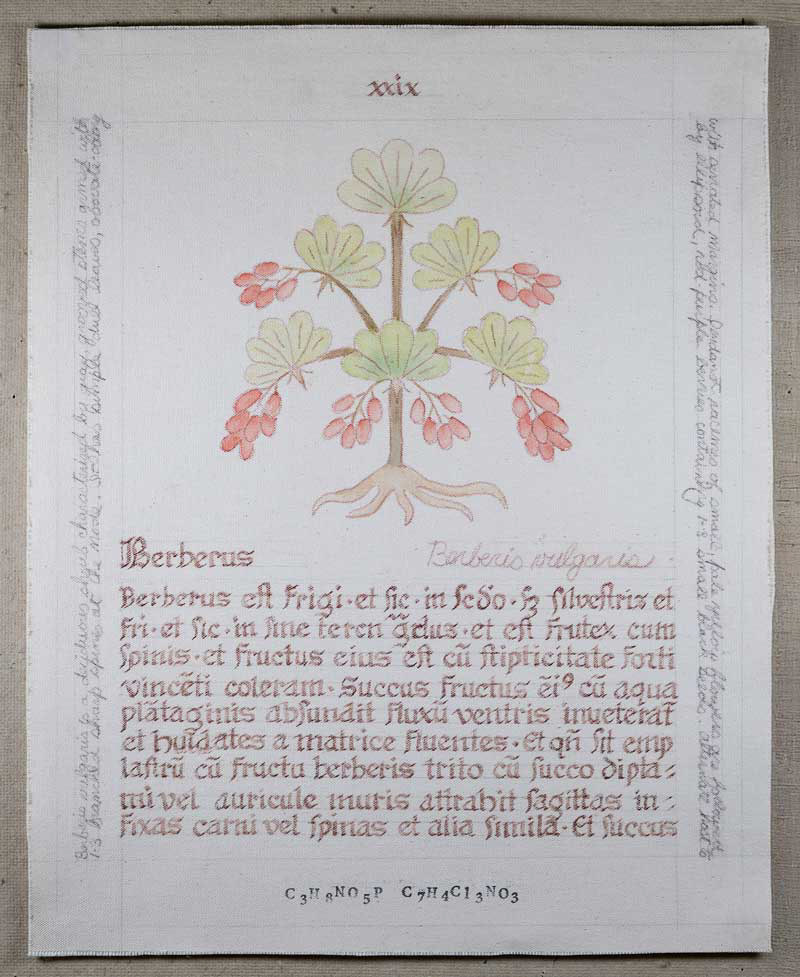 xxix
Berberus
Berberis vulgaris
Berberus est frigi · et sic · in scdo · sʒ silvestris et
fri · et sic · in fine teren gͣdus · et est frutex cum
spinis · et fructus eius est cū stipticitate forti
vincēti coleram · Succus fructus ēi⁹ cū aqua
plātaginis absundit fluxū ventris inveterat̄
et huīdates a matrice fluentes · Et qn̄ sit emp
lastrū cū fructu berberis trito cū succo dipta⸗
mi vel auricule muris attrahit sagittas in⸗
fixas carni vel spinas et alia similā · Et succus
C3H8NO5P C7H4Cl3NO3
Berberis vulgaris is a deciduous shrub characterized by gray grooved stems armed with
1-3 branched sharp spines at the node. It has simple dull leaves, obovate-
with serrated margins. Pendant racemes of small, pale yellow flowers are followed
by ellipsoid, red purple berries containing 1-3 small black seeds. alternate host to